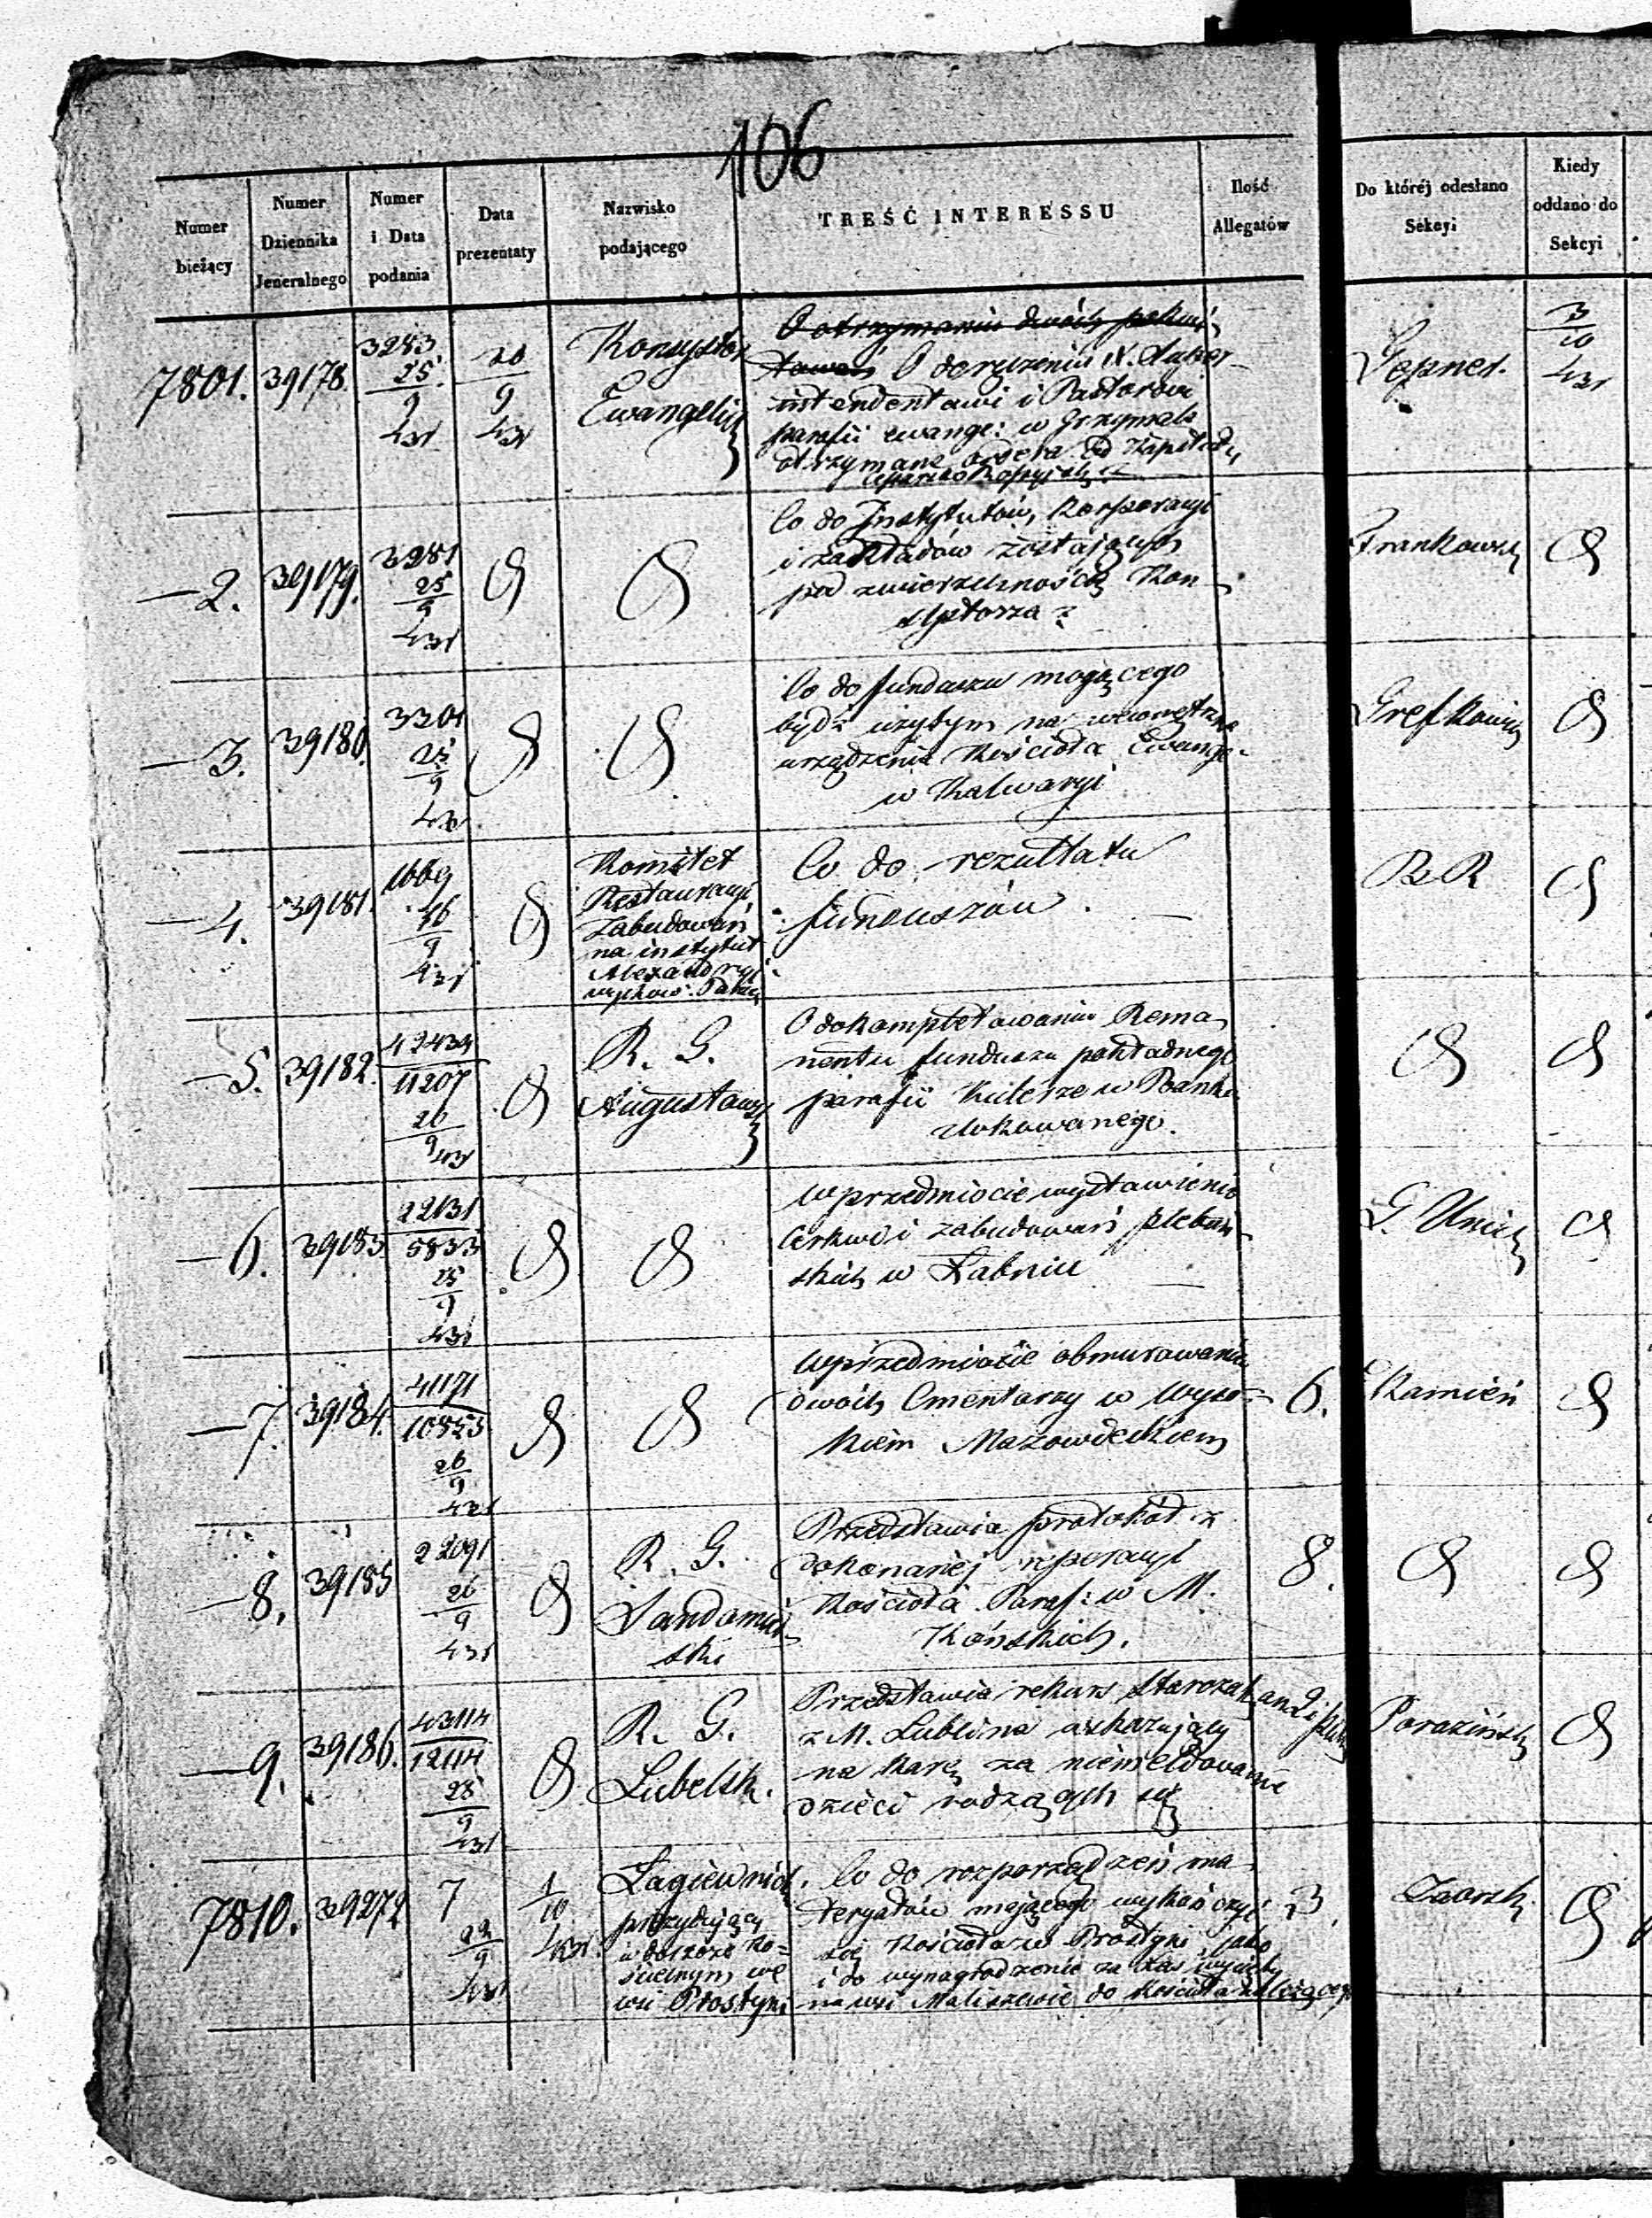 106
Numer bieżący
Numer Dziennika Jeneralnego
Numer i Data podania
Data prezentaty
Nazwisko podającego
TREŚĆ INTERESSU
Ilość Allegatów
Do któréj odesłano Sekcyi
Kiedy oddano do Sekcyi
7801. 39178.
3283
25
9
431
20
9
431
Konsystor
Ewangelic
O otrzymaniu dwóch
O doręczeniu N. Super
intendentowi i Pastorowi
parafii ewange: w
otrzymane od
Gepner.
3
10
431
2. 39179.
3281
25
9
431
Co do Instytutów, Korporacyi
i zakładów zostających
pod zwierzchnością Kon
systorza
Frankowsk
3. 39180.
3301
25
9
Co do funduszu mogącego
bydź użytym na wewnętrzne
urządzenie Kościoła Ewange
w Kalwaryi
Grefkowicz
4. 39181.
1669
16
9
431
Komitet
Restauracyi
Zabudowań
na instytut
Alexandryi
wychow. Panien
Co do rezultatu
funduszów.
5. 39182.
42434
11207
26
9
431
R. G.
Augustows
O dokompletowaniu Rema
nentu funduszu pokładnego
parafii Kulesze w Banku
ulokowanego.
6. 39183
22131
5833
25
9
431
W przedmiocie wystawienia
Cerkwi i zabudowań plebań
skich w Łabniu
G. Unick
7. 39184.
41171
10853
26
9
431
W przedmiocie obmurowania
dwóch Cmentarzy w Wyso
kiem Mazowieckiem
6.
Kamień
8. 39185
22091
26
9
431
R. G.
Sandomir
ski
Przedstawia protokół z
dokonanej reperacyi
Kościoła Paraf: w M.
Końskich.
8.
9. 39186.
43114
12114
25
9
431
R. G.
Lubelsk.
Przedstawia rekurs Starozak
z M. Lublina wskazujący
na karę za niemeldowanie
dzieci rodzących się
Poraziński
7810. 39272
7
22
9
431
1
10
431
Łagiewnick.
prezydujący
w dozorze Ko=
ścielnym we
wsi Prostyni
Co do rozporządzeń ma
teryałów mającego wykończyć
się Kościoła w Prostyni, jako
i do wynagrodzenie za las wycięty
na wsi Maliszewie do Kościoła należącego
3.